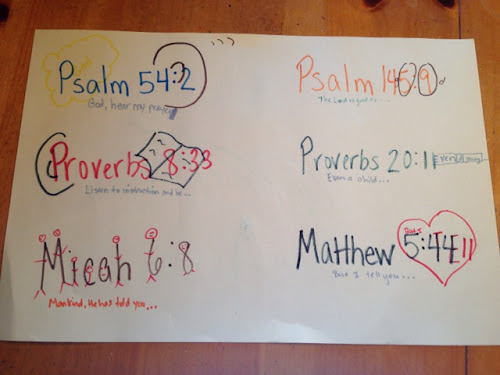 Psalm 54:2
God, hear my prayer
Psalm 145:9
The Lord is good...
Proverbs 8:33
Listen to instruction and be...
Proverbs 20:11
Even a child...
Micah 6:8
Mankind, He has told you...
Matthew 5:44
But I
But I tell you...